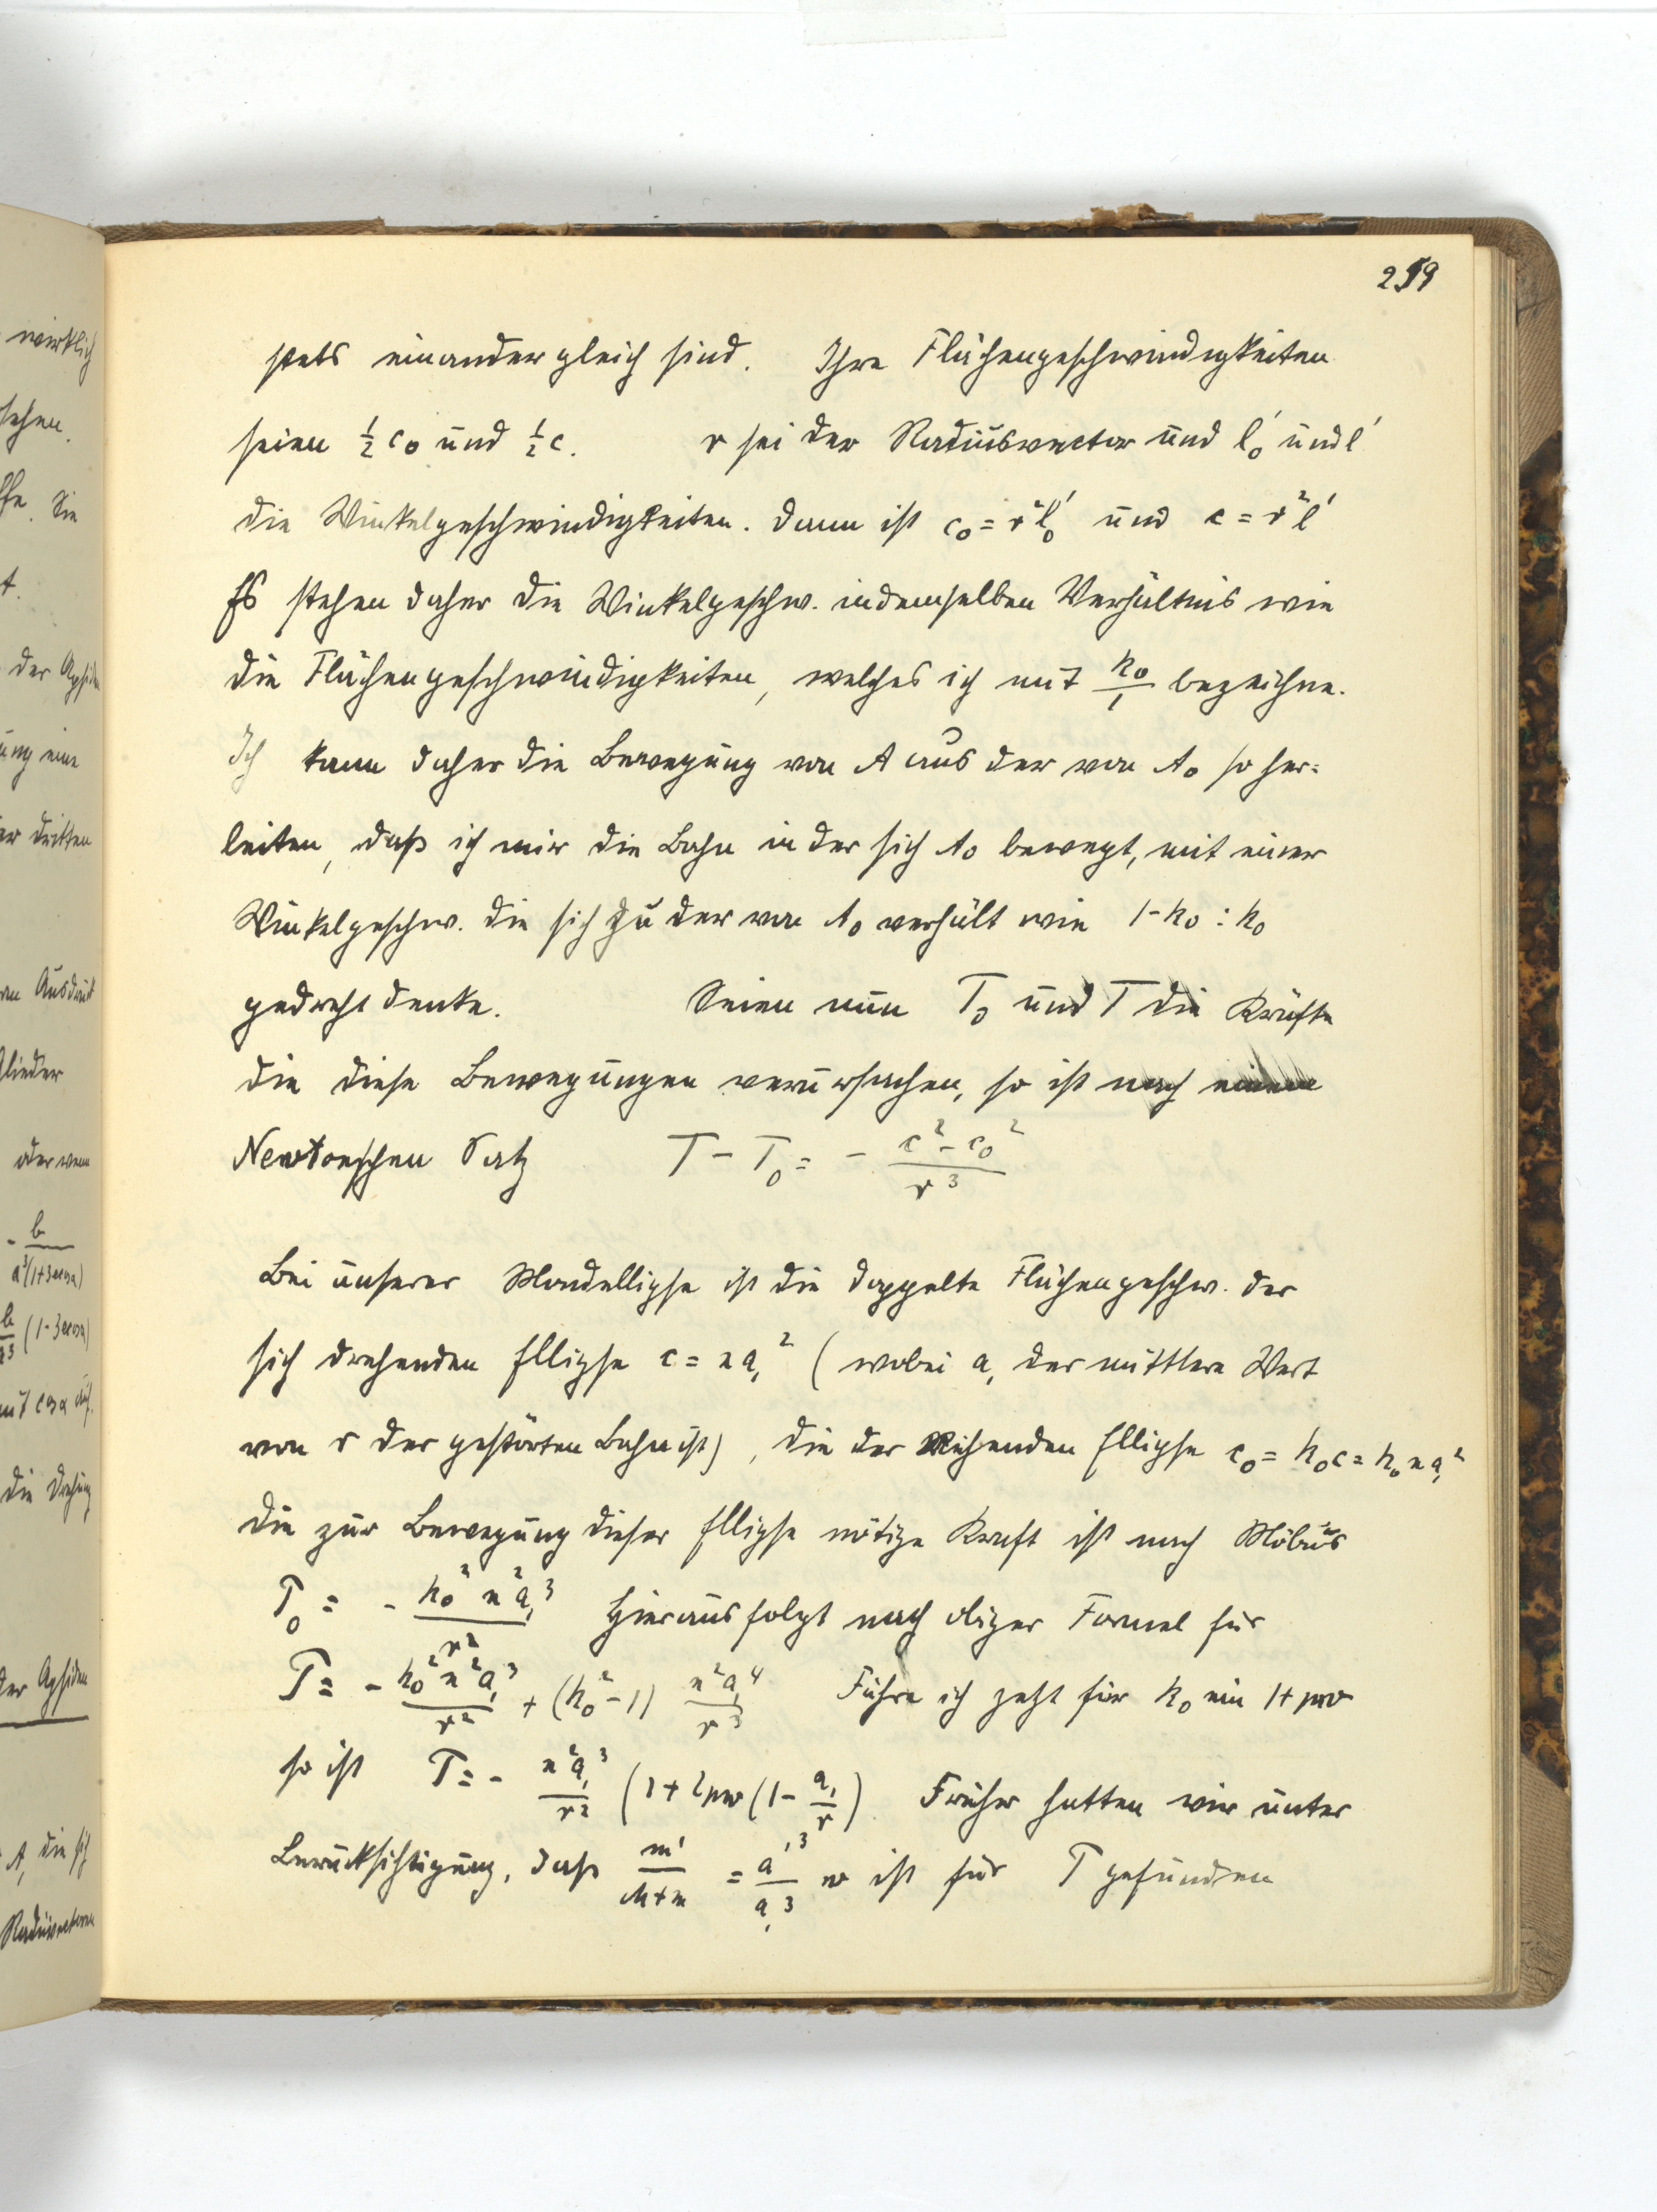 259
stets einander gleich sind. Ihre Flächengeschwindigkeiten
seien ½ c₀ und ½ c. r sei der Radiusvector und l₀′ und l′
die Winkelgeschwindigkeiten. Dann ist c₀ = r²l₀′ und c = r²l′
Es stehen daher die Winkelgeschw. in demselben Verhältnis wie
die Flächengeschwindigkeiten, welches ich mit h₀/1 bezeichne.
Ich kann daher die Bewegung von A aus der von A₀ so her=
leiten, daß ich mir die Bahn in der sich A₀ bewegt, mit einer
Winkelgeschw. die sich zu der von A₀ verhält wie 1-h₀ : h₀
gedreht denke. Seien nun T₀ und T die Kräfte
die diese Bewegungen verursachen, so ist nach einem
Newtonschen Satz T - T₀ = - (c² - c₀²)/r³
Bei unserer Mondellipse ist die doppelte Flächengeschw. der
sich drehenden Ellipse c = n a₁² (wobei a₁ der mittlere Wert
von r der gestörten Bahn ist), die der ruhenden Ellipse c₀ = h₀c = h₀ n a₁²
Die zur Bewegung dieser Ellipse nötige Kraft ist nach Möbius
T₀ = - h₀² n² a₁³/r² Hieraus folgt nach obiger Formel für
T = - h₀² n² a₁³/r² + (h₀² - 1) n² a₁⁴/r³ Führe ich jetzt für h₀ ein 1 + pw
so ist T = - n² a₁³/r² (1 + 2pw (1 - a₁/r) Früher hatten wir unter
Berücksichtigung, daß m′/(M+m) = a′³/a₁³ w ist für T gefunden
wirklich
sehen.
Sie
t.
der Apsiden
ung eine
er dritten
Ausdruck
Glieder
oder wenn
- b/(a³(1+3e cos α))
b/a³ (1-3e cos α)
mit cos α
die Drehung
der Apsiden
A, die sich
Radiusvectoren